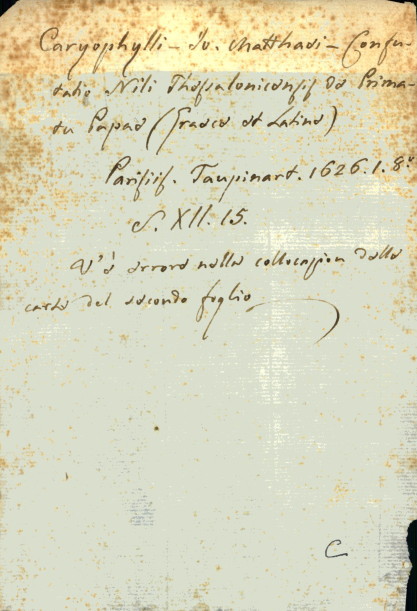 Caryophylli - Jo. Matthaei - Confu-
tatio Nili Thessalonicensis de Prima-
tu Papae (Graece et Latine)
Parisiis. Taupinart. 1626. 1. 8.º
S. XII. 15.
V'è errore nella collocazion delle
carte del secondo foglio
C